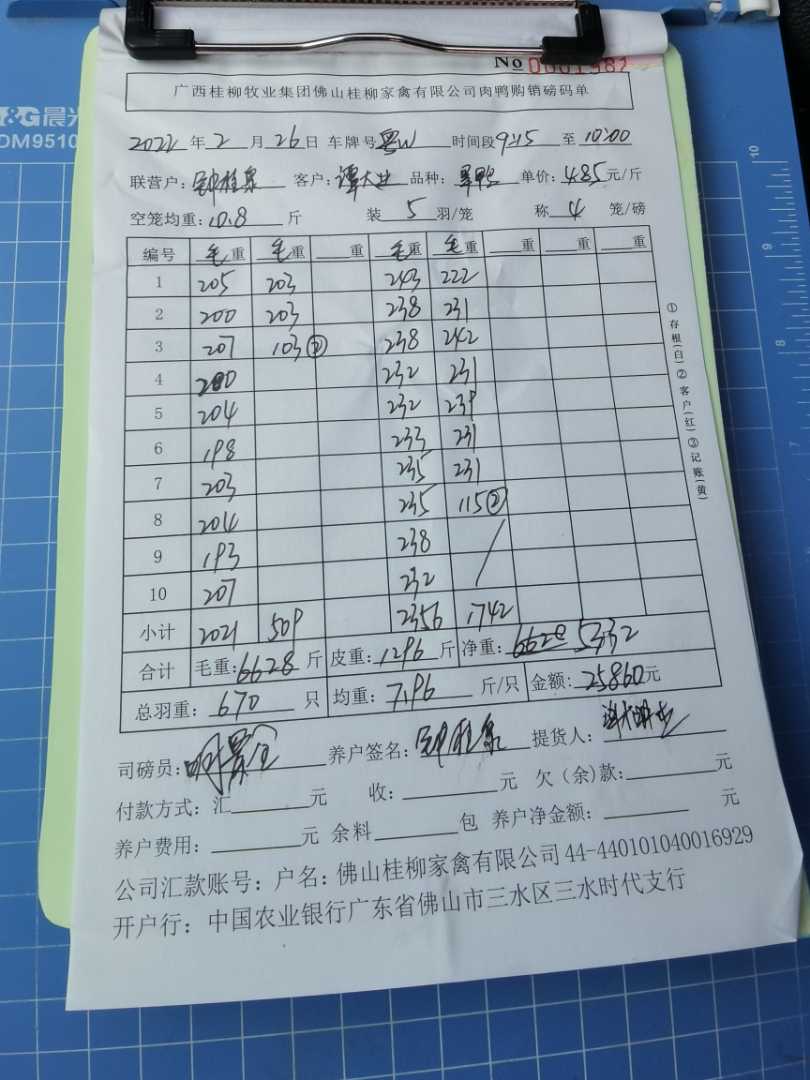 M&G晨光
DM9510
No 0001982
广西桂柳牧业集团佛山桂柳家禽有限公司肉鸭购销磅码单
2022年2月26日 车牌号粤W 时间段9:15至10:00
联营户:钟桂泉 客户:谭大业 品种:旱鸭 单价:4.85元/斤
空笼均重:10.8斤 装5羽/笼 称4笼/磅
编号 毛重 毛重 重 毛重 毛重 重 重 重
1 205 203 243 222
2 200 203 238 231
3 207 103② 238 242
4 200 232 231
5 204 232 239
6 198 233 231
7 203 235 231
8 204 235 115②
9 193 238
10 207 232
小计 2021 509 2356 1742
合计 毛重:6628斤 皮重:1296斤 净重:6620 5332
总羽重:670只 均重:7.96斤/只 金额:25860元
司磅员: 养户签名:钟桂泉 提货人:
付款方式:汇 元 收: 元 欠(余)款: 元
养户费用: 元 余料 包 养户净金额: 元
公司汇款账号:户名:佛山桂柳家禽有限公司44-440101040016929
开户行:中国农业银行广东省佛山市三水区三水时代支行
①存根(白)②客户(红)③记账(黄)
10
9
8